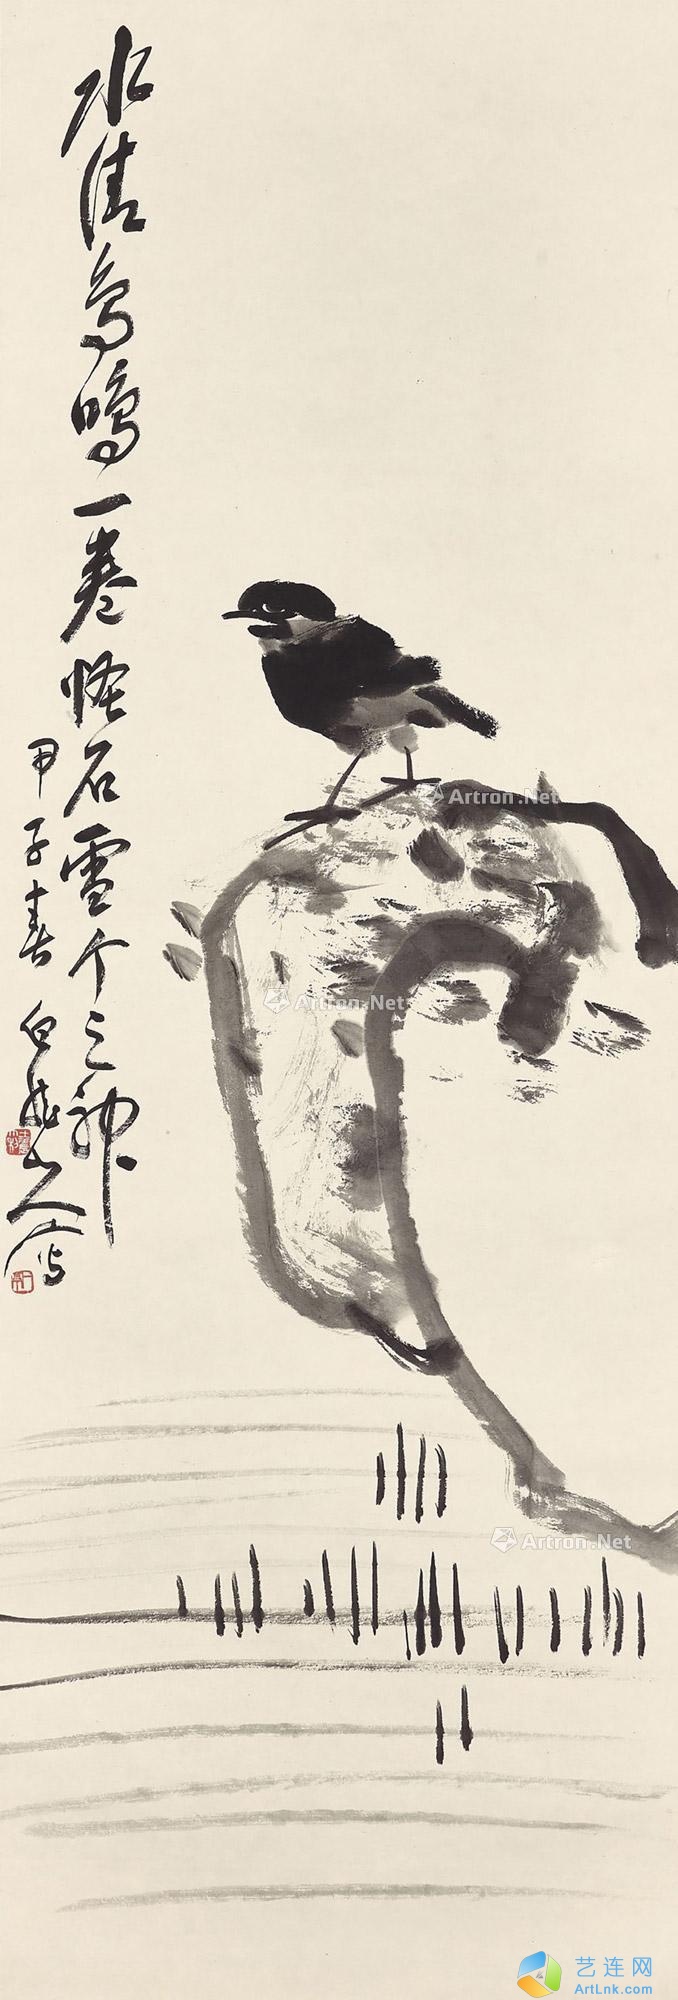 水清鸟鸣一卷怪石雪个之神
甲子春白成山人写
Artron.Net
Artron.Net
Artron.Net
艺连网
ArtLnk.com